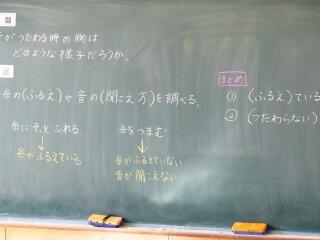 題
がつたわる時の物は
どのような様子だろうか。
糸の(ふるえ)や音の(聞こえ方)を調べる。
糸にそっとふれる
↓
糸がふるえている
糸をつまむ
↓
糸がふるえていない
音が聞こえない
まとめ
① (ふるえ)ている
② (つたわらない)